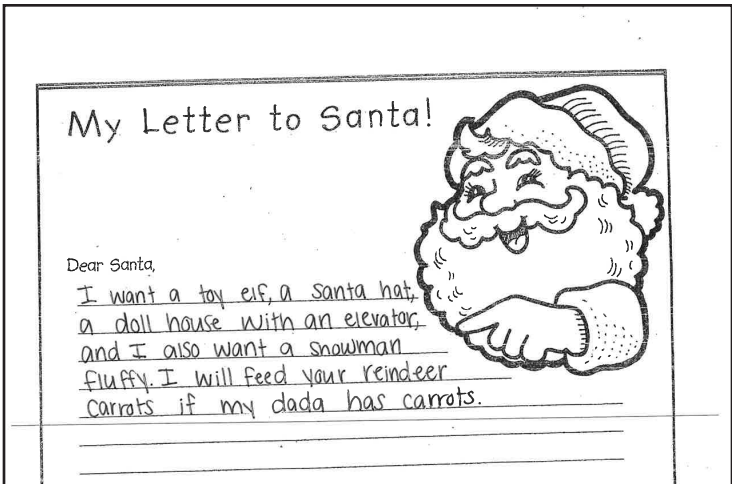 My Letter to Santa!
Dear Santa,
I want a toy elf, a santa hat,
a doll house with an elevator,
and I also want a snowman
fluffy. I will feed your reindeer
carrots if my dada has carrots.